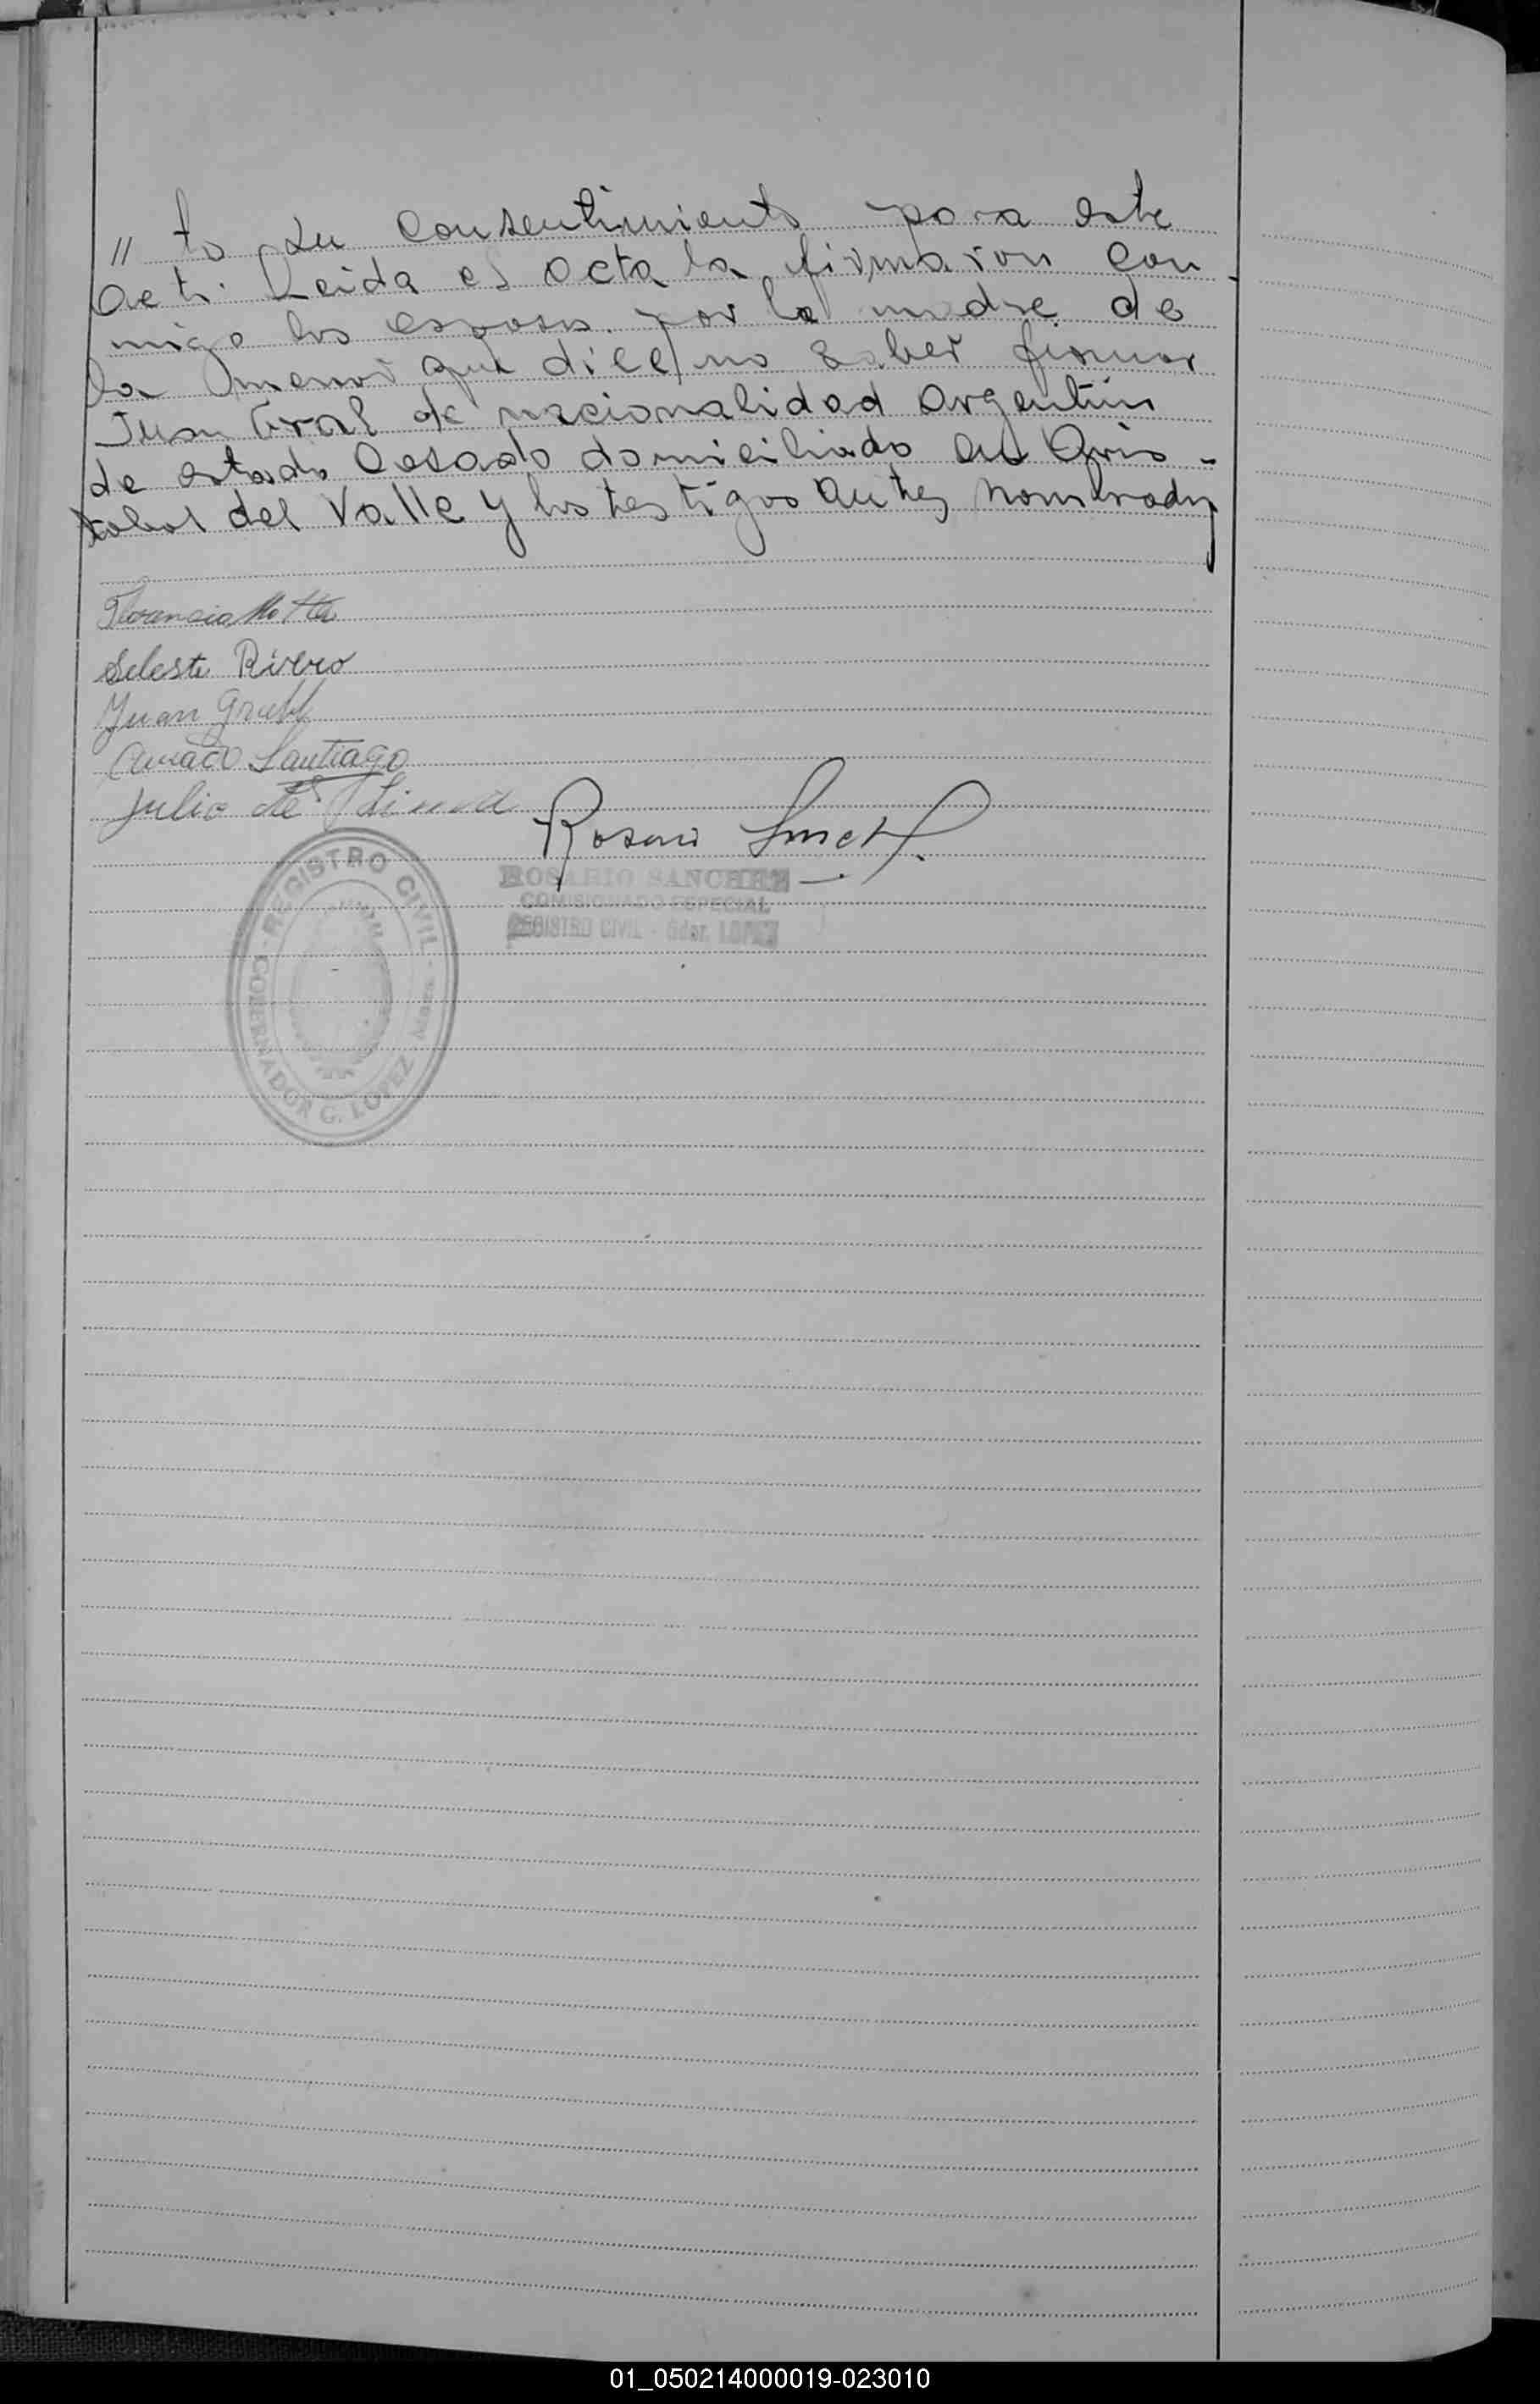 // to su consentimiento para este
acto. Leida el acta la firmaron con-
migo los esposos. por la madre de
la menor que dice no saber firmar
Juan Graf de nacionalidad Argentin
de estado Casado domiciliado en Cris-
tobal del Valle y los testigos antes nombrados
Florencia Motta
Seleste Rivero
Juan Graff
Amado Santiago
Julio de
Rosario Sanchez
ROSARIO SANCHEZ
COMISIONADO ESPECIAL
REGISTRO CIVIL - Gdor. LOPEZ
REGISTRO CIVIL
GOBERNADOR G. LOPEZ
01_050214000019-023010